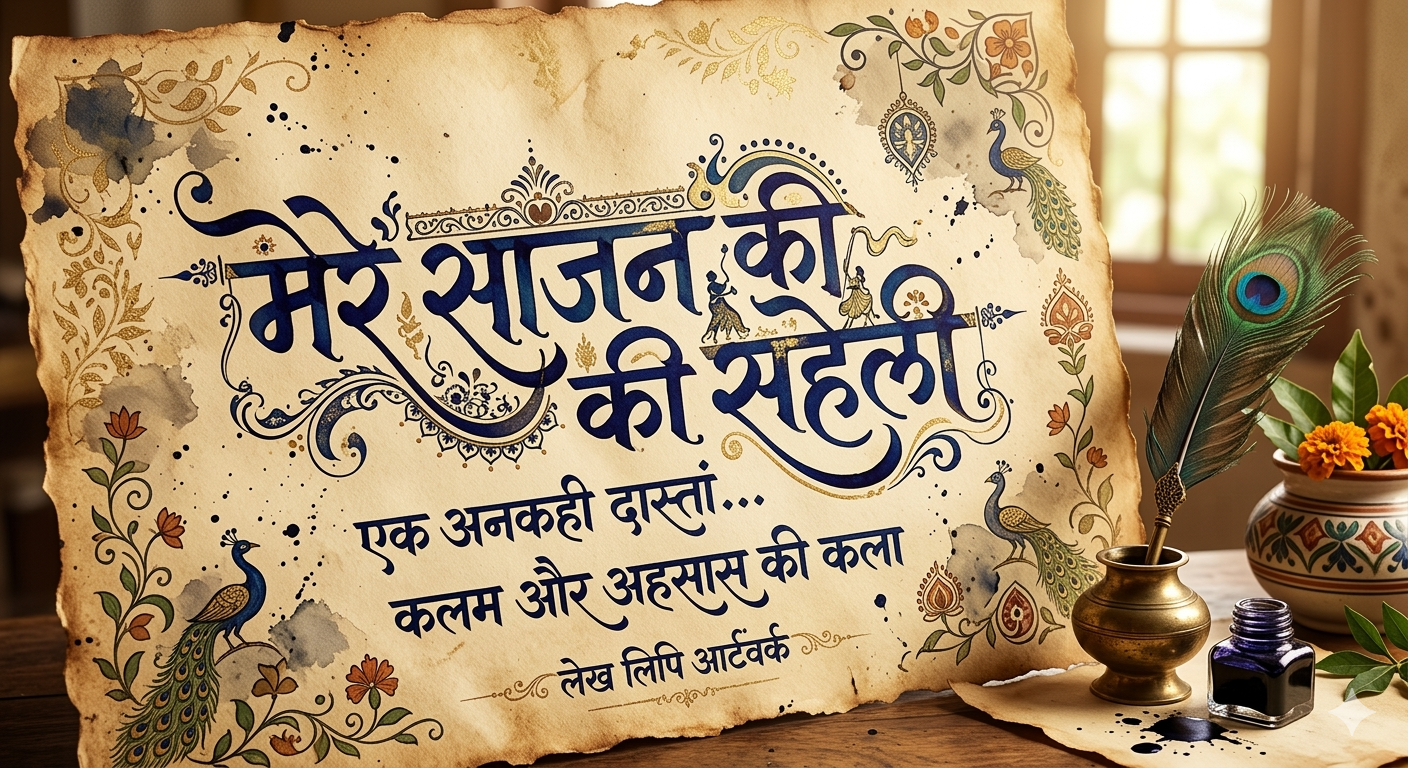 मेरे साजन की
की सहेली
एक अनकही दास्तां...
कलम और अहसास की कला
लेख लिपि आर्टवर्क